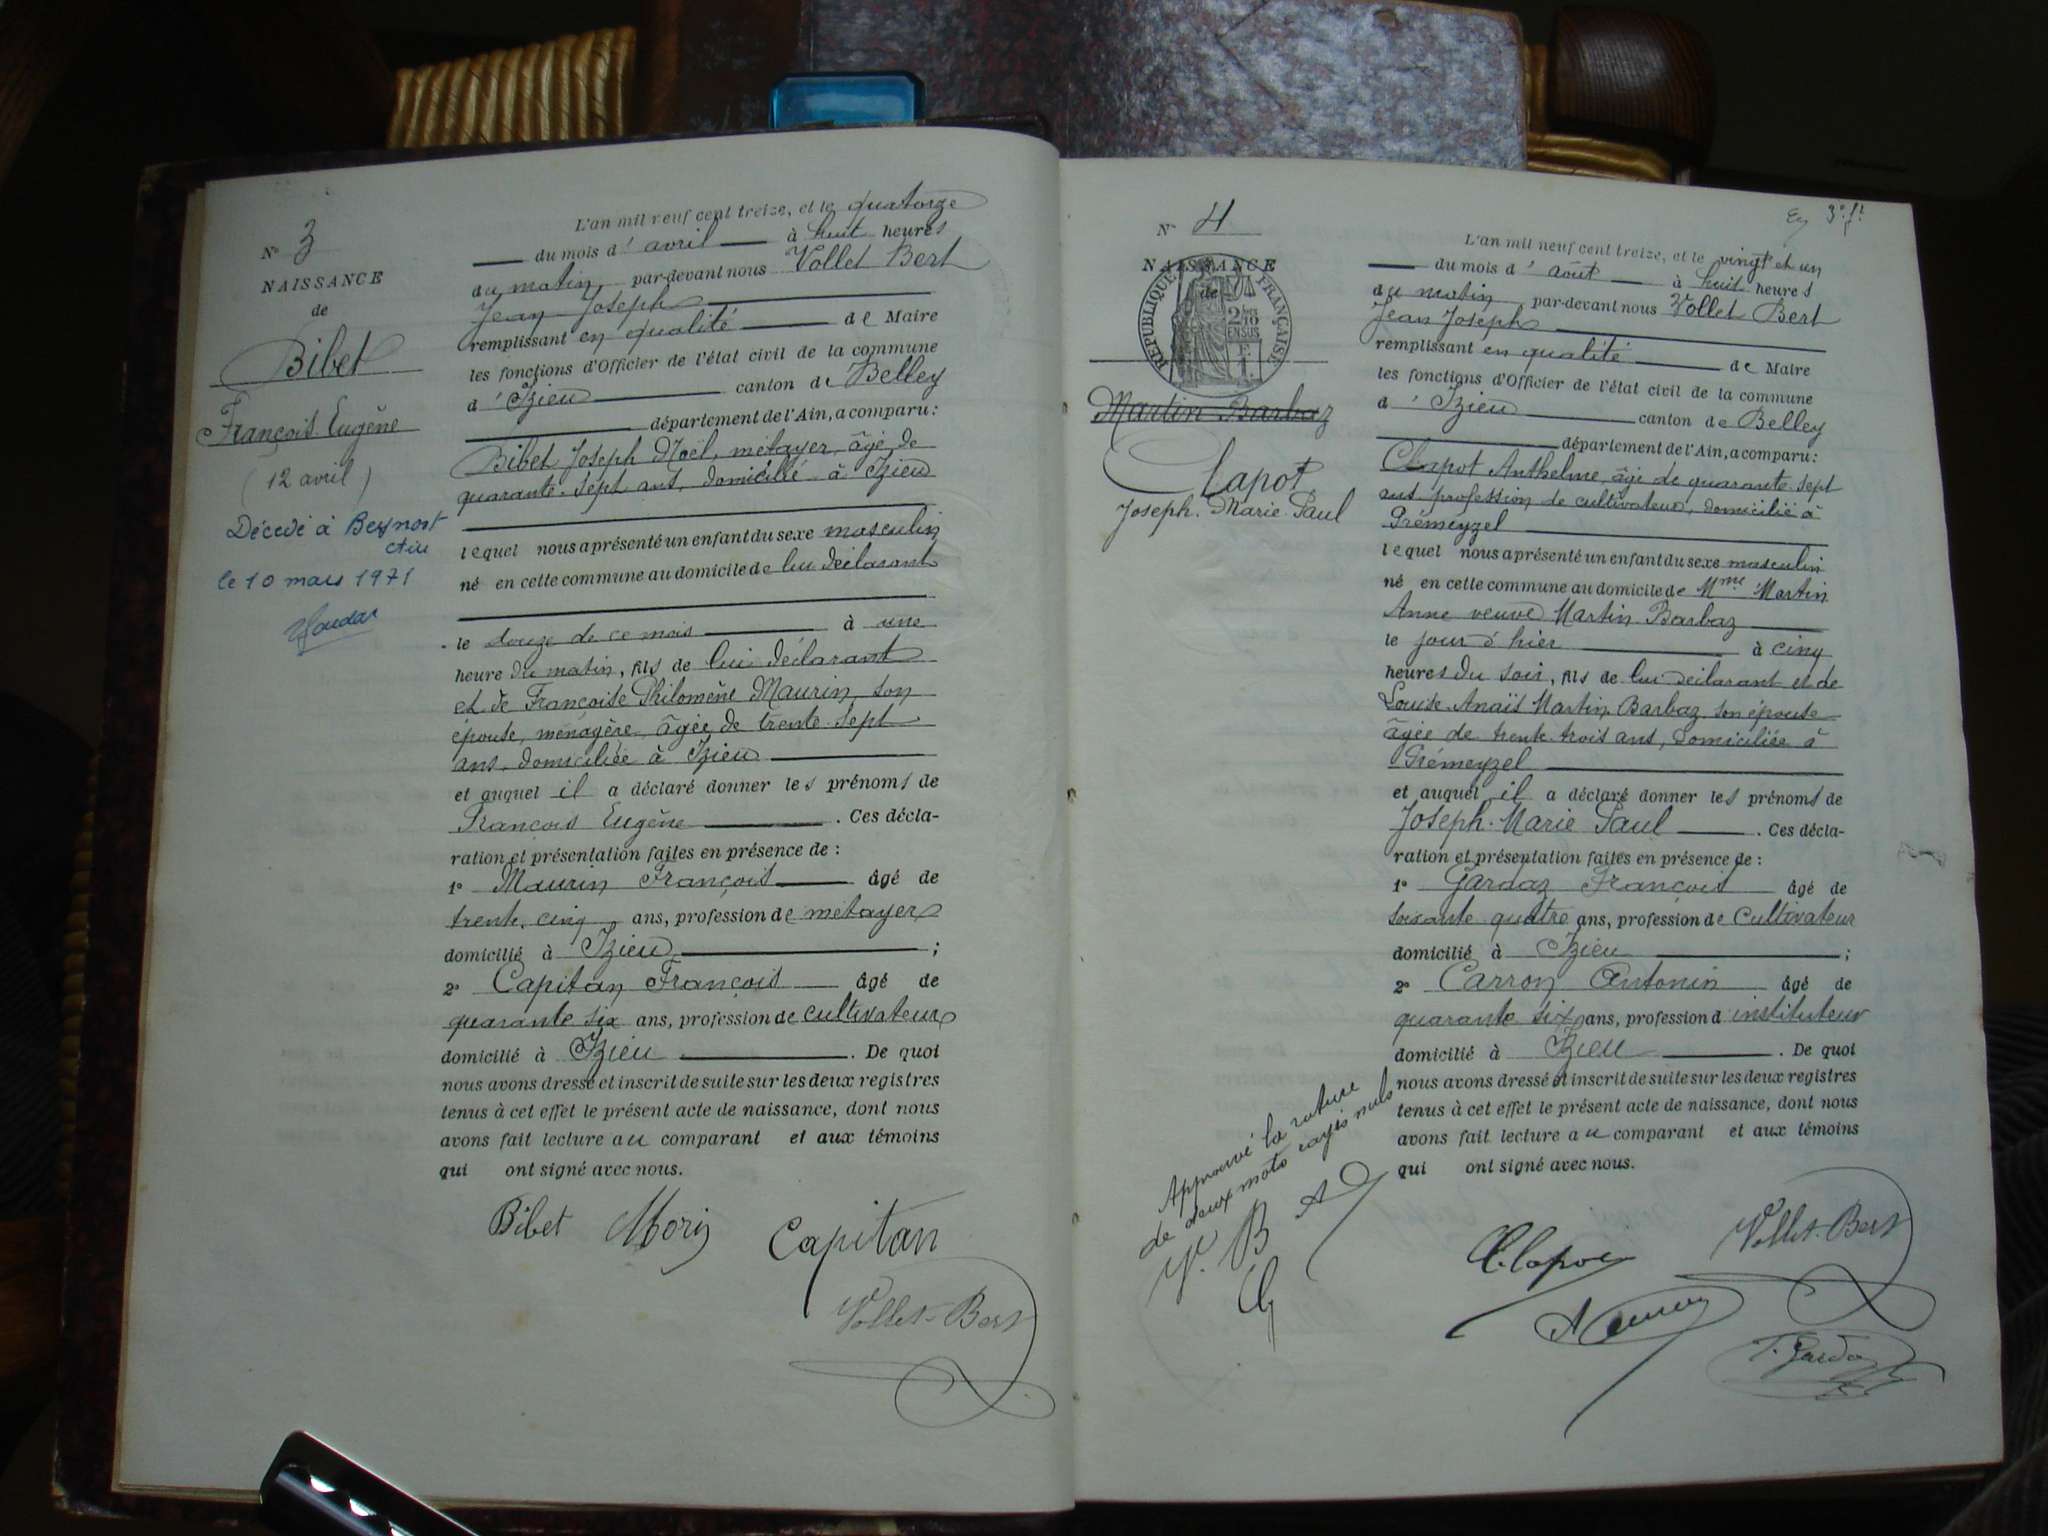 N° 3
NAISSANCE
de
Bibet
François Eugène
(12 avril)
Décédé à Beynost
le 10 mars 1971
L'an mil neuf cent treize, et le quatorze
du mois d'avril à huit heures
du matin par-devant nous Vollet Bert
Jean Joseph
remplissant en qualité de Maire
les fonctions d'Officier de l'état civil de la commune
d'Izieu canton de Belley
département de l'Ain, a comparu :
Bibet Joseph Noël, métayer, âgé de
quarante-sept ans, domicilié à Izieu
lequel nous a présenté un enfant du sexe masculin
né en cette commune au domicile de lui déclarant
le douze de ce mois à une
heure du matin, fils de lui déclarant
et de Françoise Philomène Maurin, son
épouse, ménagère, âgée de trente-sept
ans, domiciliée à Izieu
et auquel il a déclaré donner les prénoms de
François Eugène . Ces décla-
ration et présentation faites en présence de :
1° Maurin François âgé de
trente-cinq ans, profession de métayer
domicilié à Izieu ;
2° Capitan François âgé de
quarante six ans, profession de cultivateur
domicilié à Izieu . De quoi
nous avons dressé et inscrit de suite sur les deux registres
tenus à cet effet le présent acte de naissance, dont nous
avons fait lecture au comparant et aux témoins
qui ont signé avec nous.
Bibet Morin Capitan
Vollet-Bert
N° 4
NAISSANCE
de
RÉPUBLIQUE FRANÇAISE
Martin Barbaz
Clapot
Joseph-Marie-Paul
L'an mil neuf cent treize, et le vingt et un
du mois d'août à huit heures
du matin par-devant nous Vollet Bert
Jean Joseph
remplissant en qualité de Maire
les fonctions d'Officier de l'état civil de la commune
d'Izieu canton de Belley
département de l'Ain, a comparu :
Clapot Anthelme, âgé de quarante-sept
ans profession de cultivateur, domicilié à
Prémeyzel
lequel nous a présenté un enfant du sexe masculin
né en cette commune au domicile de Mme Martin
Anne veuve Martin-Barbaz
le jour d'hier à cinq
heures du soir, fils de lui déclarant et de
Louise-Anaïs Martin-Barbaz, son épouse
âgée de trente-trois ans, domiciliée à
Prémeyzel
et auquel il a déclaré donner les prénoms de
Joseph-Marie Paul . Ces décla-
ration et présentation faites en présence de :
1° Gardaz François âgé de
soixante quatre ans, profession de cultivateur
domicilié à Izieu ;
2° Carron Antonin âgé de
quarante six ans, profession d'instituteur
domicilié à Izieu . De quoi
nous avons dressé et inscrit de suite sur les deux registres
tenus à cet effet le présent acte de naissance, dont nous
avons fait lecture au comparant et aux témoins
qui ont signé avec nous.
Approuvé la rature
de deux mots rayés nuls
V. B
Clapot
Vollet-Bert